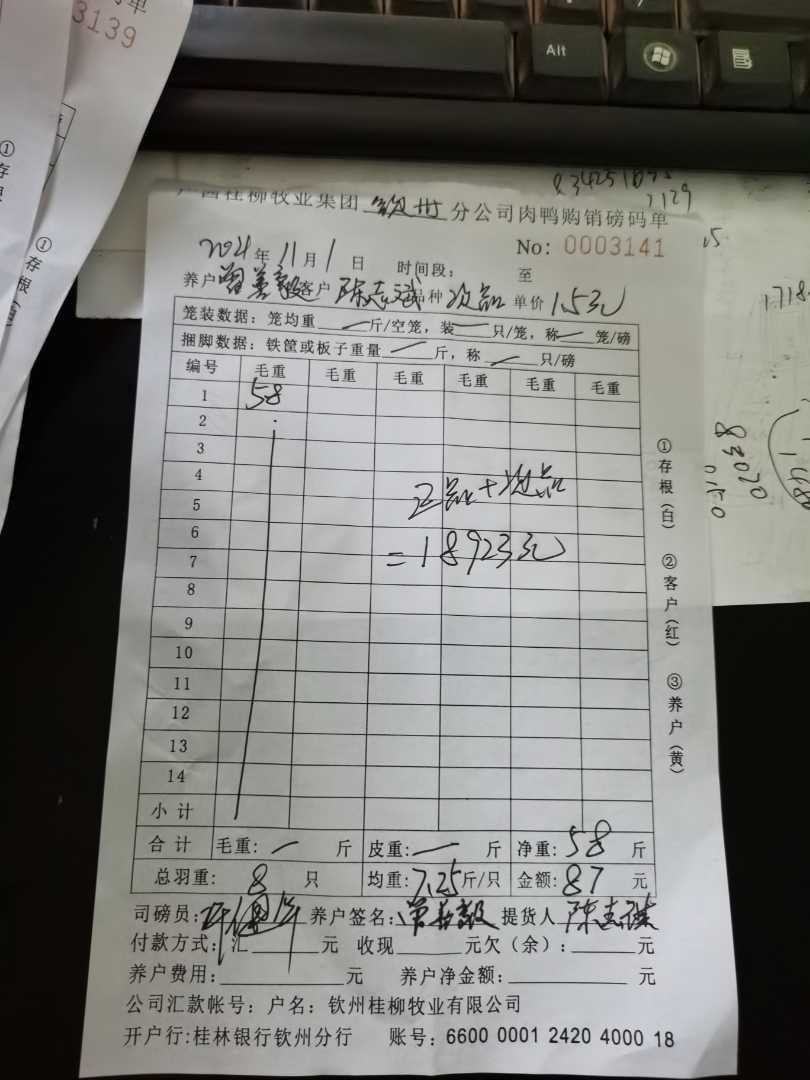 3139
①存
①存根（白）
Alt
83425
7129
广西桂柳牧业集团 钦州 分公司肉鸭购销磅码单
2024年11月1日 时间段： 至
No: 0003141
养户 曾善毅 客户 陈志斌 品种 次品 单价 1.5元
笼装数据：笼均重 一 斤/空笼，装 一 只/笼，称 一 笼/磅
捆脚数据：铁筐或板子重量 一 斤，称 一 只/磅
编号 毛重 毛重 毛重 毛重 毛重 毛重
1 58
2
3
4
5
6
7
8
9
10
11
12
13
14
正品+次品
=18923元
小计
合计 毛重：一 斤 皮重：一 斤 净重：58 斤
总羽重：8 只 均重：7.25斤/只 金额：87 元
司磅员： 养户签名：曾善毅 提货人
付款方式：汇 元 收现 元欠（余）： 元
养户费用： 元 养户净金额： 元
公司汇款帐号：户名：钦州桂柳牧业有限公司
开户行:桂林银行钦州分行 账号：6600 0001 2420 4000 18
①存根（白） ②客户（红） ③养户（黄）
83070
0.150
1718